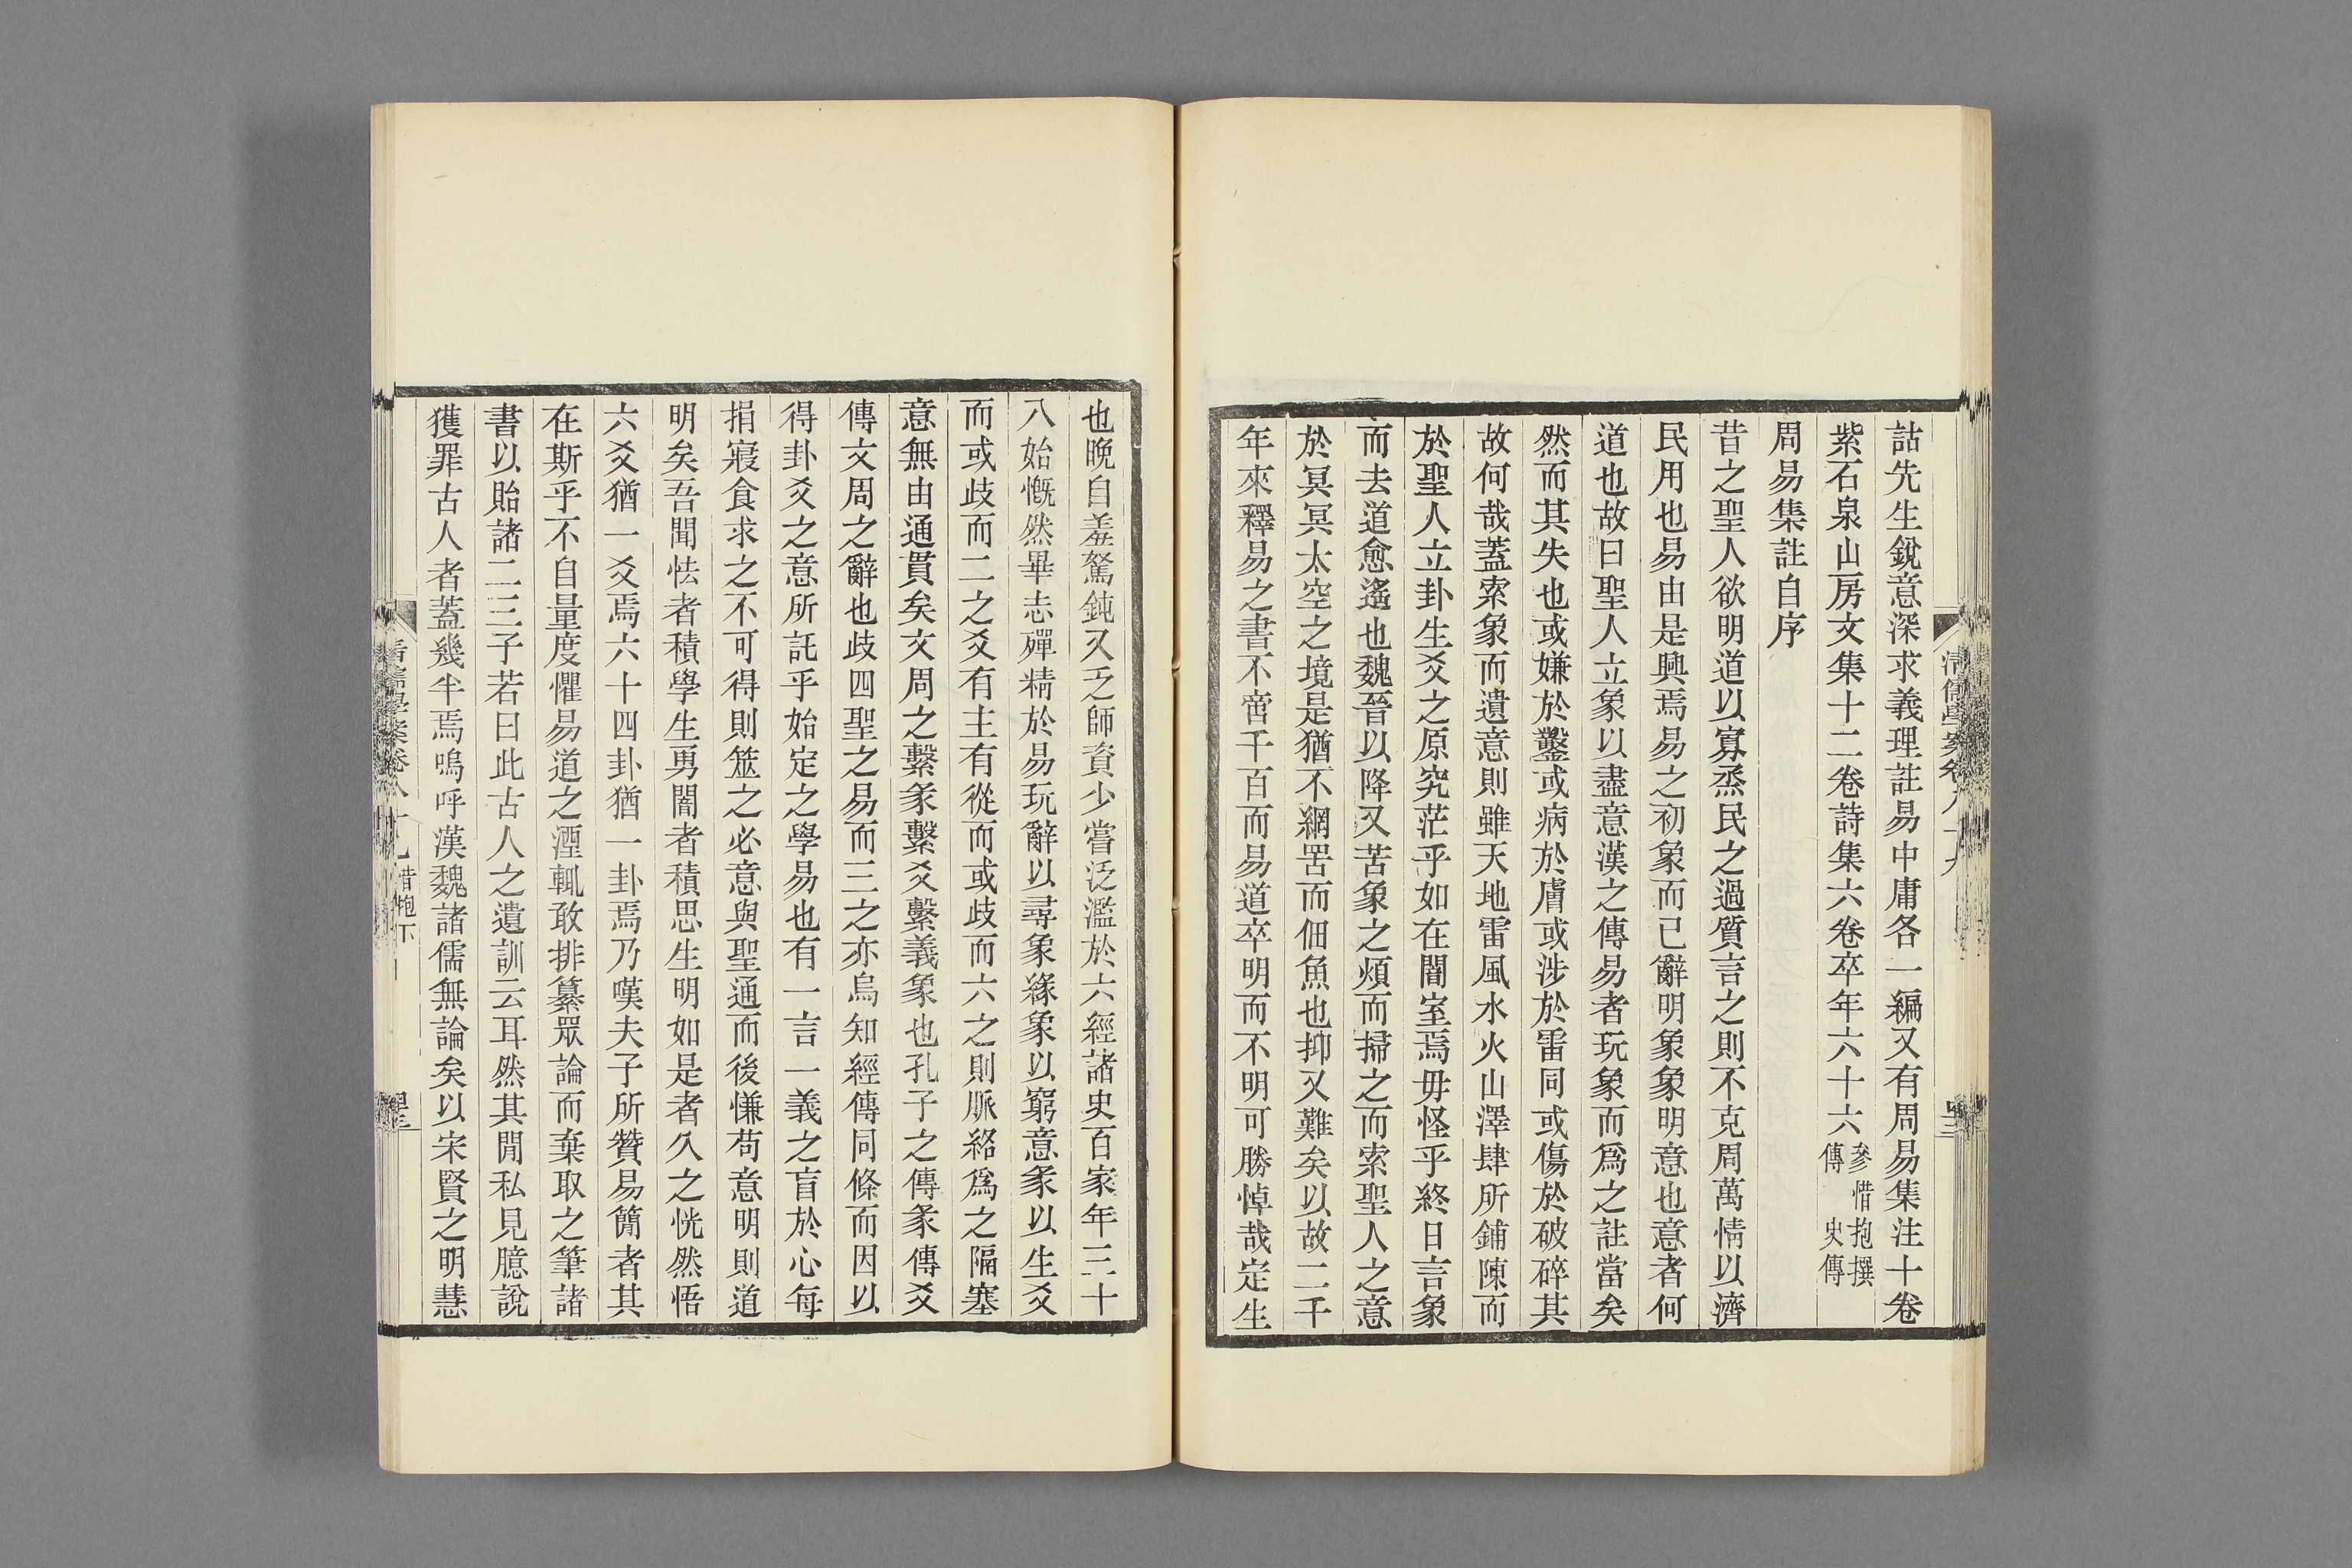 詁先生銳意深求義理註易中庸各一編又有周易集注十卷
紫石泉山房文集十二卷詩集六卷卒年六十六參惜抱撰傳史傳
周易集註自序
昔之聖人欲明道以寡烝民之過質言之則不克周萬情以濟
民用也易由是興焉易之初象而已辭明象象明意也意者何
道也故曰聖人立象以盡意漢之傳易者玩象而爲之註當矣
然而其失也或嫌於鑿或病於膚或涉於雷同或傷於破碎其
故何哉蓋索象而遺意則雖天地雷風水火山澤肆所鋪陳而
於聖人立卦生爻之原究茫乎如在闇室焉毋怪乎終日言象
而去道愈遙也魏晉以降又苦象之煩而掃之而索聖人之意
於冥冥太空之境是猶不網罟而佃魚也抑又難矣以故二千
年來釋易之書不啻千百而易道卒明而不明可勝悼哉定生
也晚自羞駑鈍又乏師資少嘗泛濫於六經諸史百家年三十
八始慨然畢志殫精於易玩辭以尋象緣象以窮意彖以生爻
而或歧而二之爻有主有從而或歧而六之則脈絡爲之隔塞
意無由通貫矣文周之繫彖繫爻繫義象也孔子之傳彖傳爻
傳文周之辭也歧四聖之易而三之亦烏知經傳同條而因以
得卦爻之意所託乎始定之學易也有一言一義之盲於心每
捐寢食求之不可得則筮之必意與聖通而後慊苟意明則道
明矣吾聞怯者積學生勇闇者積思生明如是者久之恍然悟
六爻猶一爻焉六十四卦猶一卦焉乃嘆夫子所贊易簡者其
在斯乎不自量度懼易道之湮輒敢排纂眾論而棄取之筆諸
書以貽諸二三子若曰此古人之遺訓云耳然其閒私見臆說
獲罪古人者蓋幾半焉嗚呼漢魏諸儒無論矣以宋賢之明慧